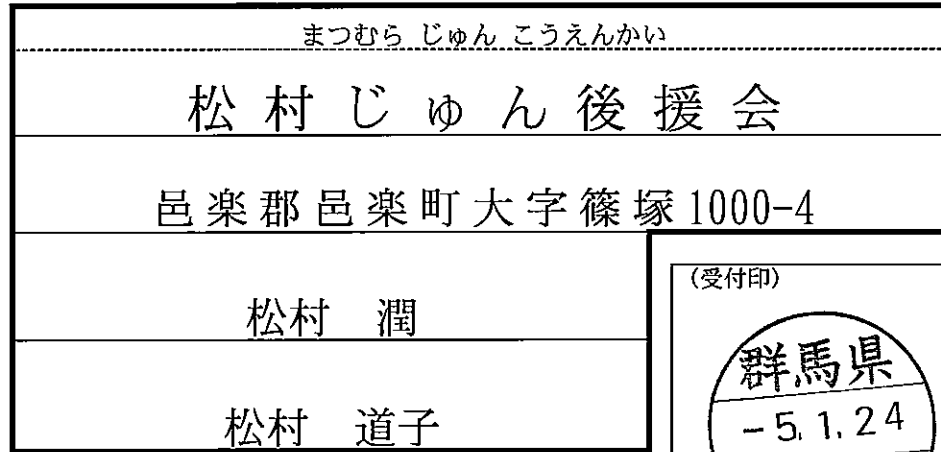 まつむら じゅん こうえんかい
松村じゅん後援会
邑楽郡邑楽町大字篠塚1000-4
松村　潤
松村　道子
(受付印)
群馬県
-5.1.24